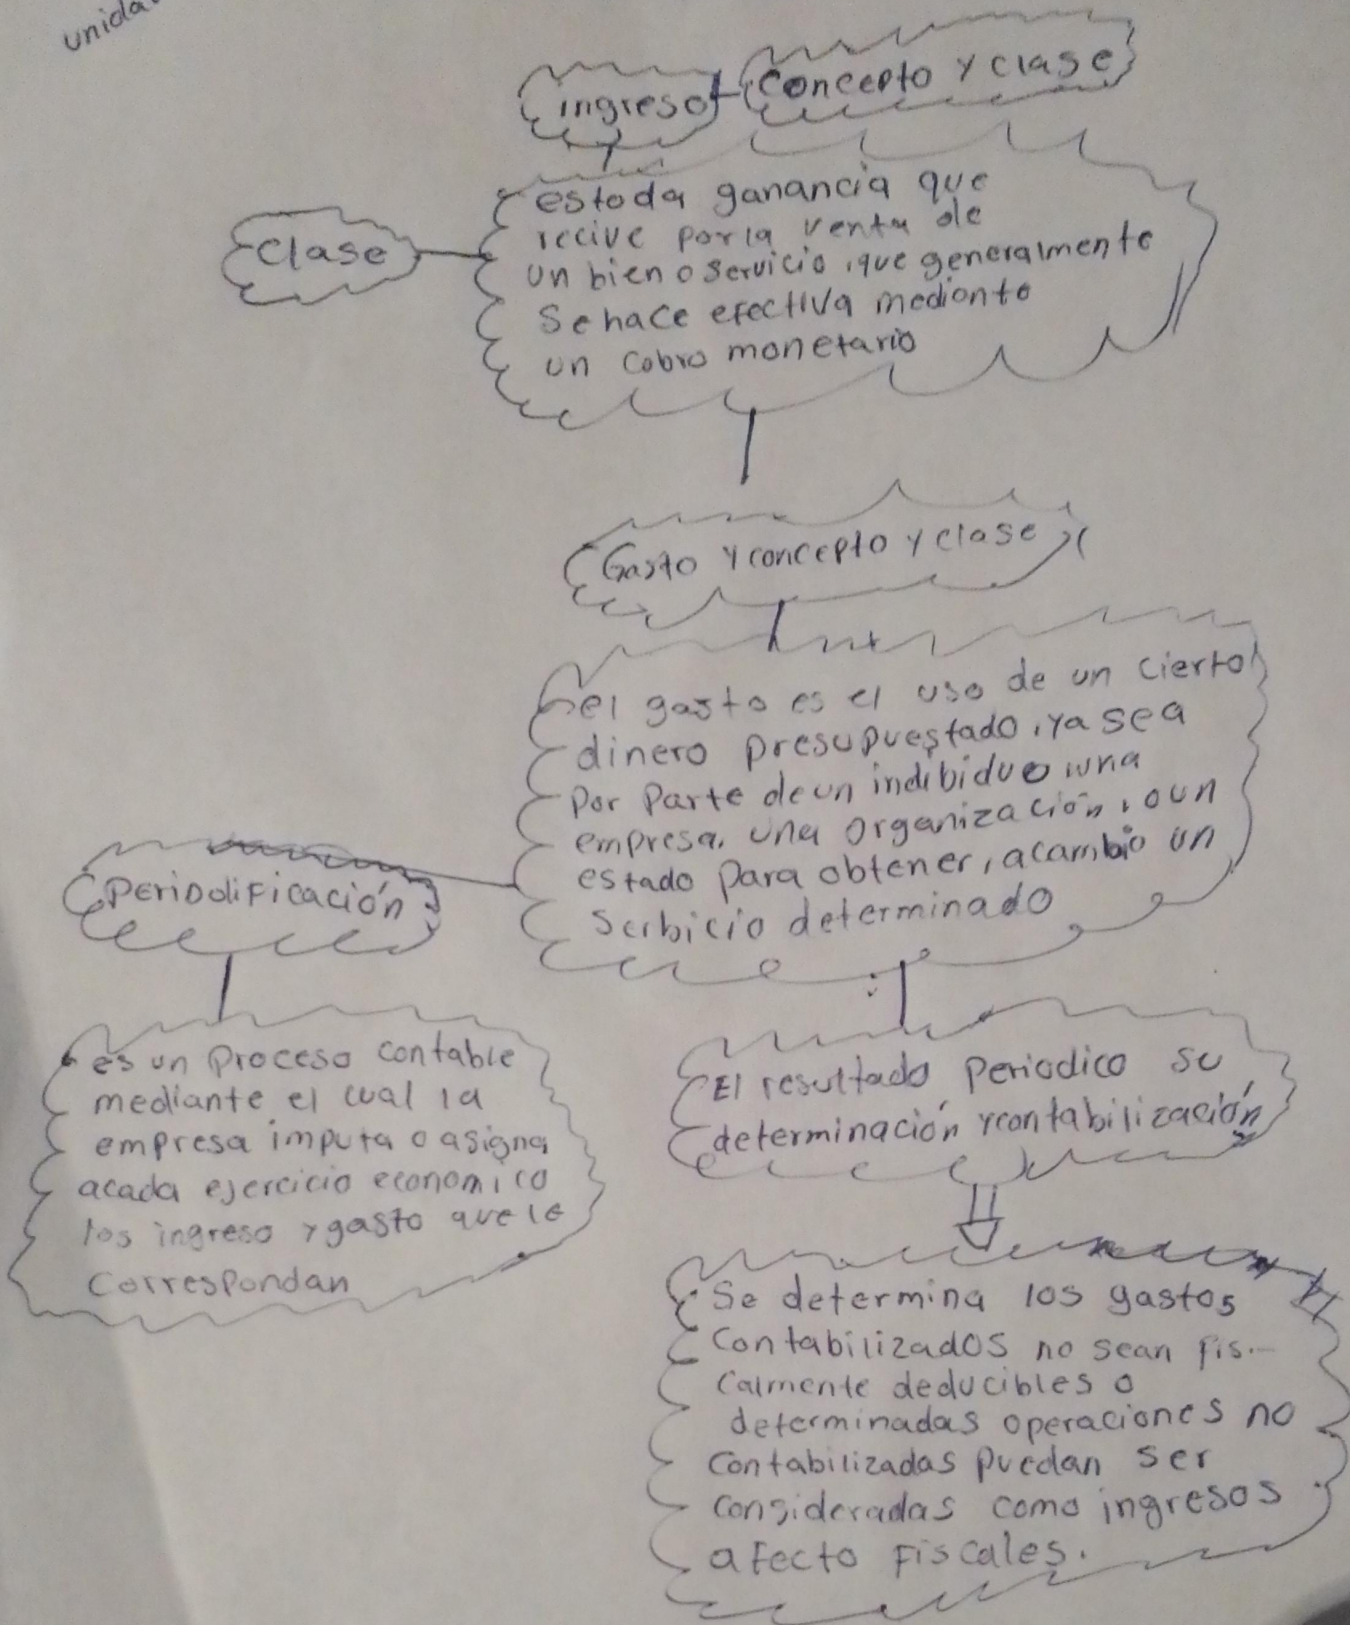 ingreso
concepto y clase
es toda ganancia que
recive por la venta de
un bien o servicio, que generalmente
Se hace efectiva mediante
un cobro monetario
Clase
Gasto y concepto y clase
el gasto es el uso de un cierto
dinero presupuestado, ya sea
por parte de un indibiduo una
empresa, una organización, o un
estado para obtener, a cambio un
Serbicio determinado
Periodificación
es un proceso contable
mediante el cual la
empresa imputa o asigna
acada ejercicio economico
los ingreso y gasto que le
Correspondan
El resultado Periodico su
determinación y contabilización
Se determina los gastos
Contabilizados no sean fis-
calmente deducibles o
determinadas operaciones no
Contabilizadas puedan ser
consideradas como ingresos
afecto Fiscales.